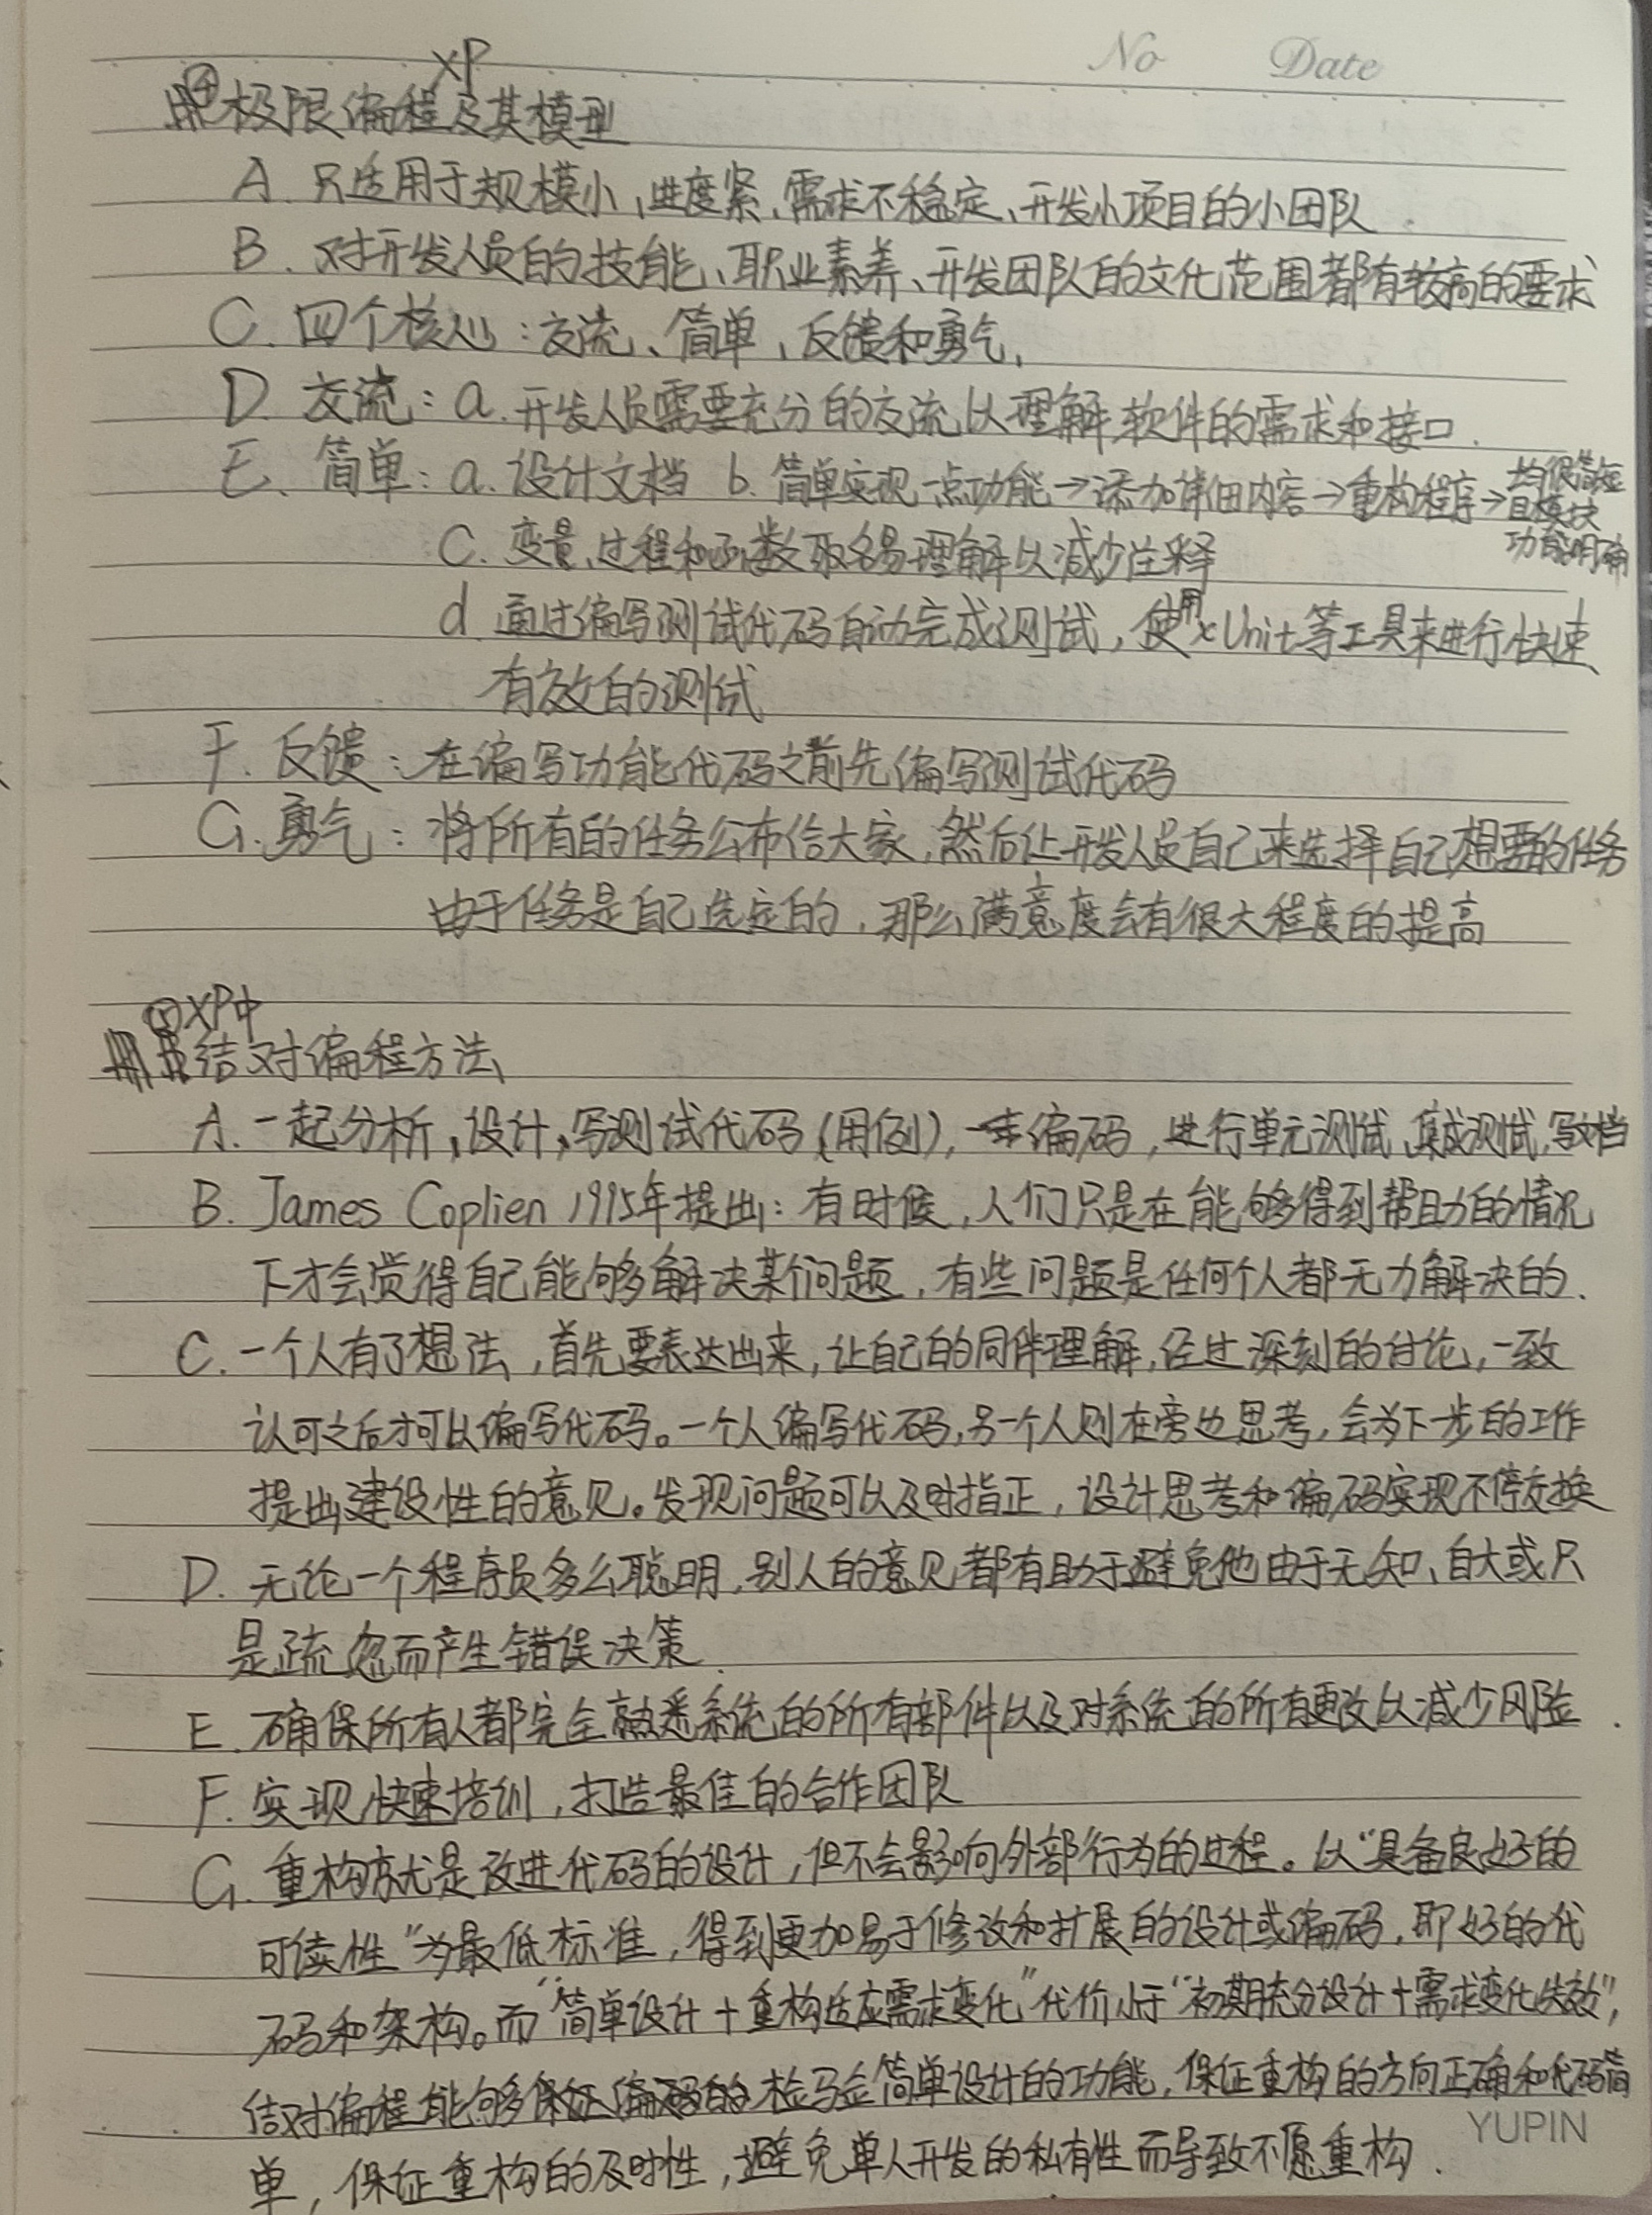 No Date
XP
④极限编程及其模型
A. 只适用于规模小、进度紧、需求不稳定、开发小项目的小团队.
B. 对开发人员的技能、职业素养、开发团队的文化范围都有较高的要求
C. 四个核心:交流、简单、反馈和勇气.
D. 交流:a.开发人员需要充分的交流以理解软件的需求和接口.
E. 简单:a.设计文档 b.简单实现一点功能→添加详细内容→重构程序→均很简短且模块功能明确
C. 变量、过程和函数取名易理解以减少注释
d. 通过编写测试代码自动完成测试,使用xUnit等工具来进行快速
有效的测试
F. 反馈:在编写功能代码之前先编写测试代码
G. 勇气:将所有的任务公布给大家,然后让开发人员自己来选择自己想要的任务
由于任务是自己选定的,那么满意度会有很大程度的提高
⑤XP中
结对编程方法
A. 一起分析,设计,写测试代码(用例),编码,进行单元测试,集成测试,写文档
B. James Coplien 1995年提出:有时候,人们只是在能够得到帮助的情况
下才会觉得自己能够解决某个问题,有些问题是任何个人都无力解决的.
C. 一个人有了想法,首先要表达出来,让自己的同伴理解,经过深刻的讨论,一致
认可之后才可以编写代码。一个人编写代码,另一个人则在旁边思考,会为下一步的工作
提出建设性的意见。发现问题可以及时指正,设计思考和编码实现不停交换
D. 无论一个程序员多么聪明,别人的意见都有助于避免他由于无知、自大或只
是疏忽而产生错误决策.
E. 确保所有人都完全熟悉系统的所有部件以及对系统的所有更改以减少风险.
F. 实现快速培训,打造最佳的合作团队
G. 重构就是改进代码的设计,但不会影响外部行为的过程。以“具备良好的
可读性”为最低标准,得到更加易于修改和扩展的设计或编码,即好的代
码和架构。而“简单设计+重构适应需求变化”代价小于“初期充分设计+需求变化失效”,
结对编程能够保证编码的检验简单设计的功能,保证重构的方向正确和代码简
单,保证重构的及时性,避免单人开发的私有性而导致不愿重构.
YUPIN